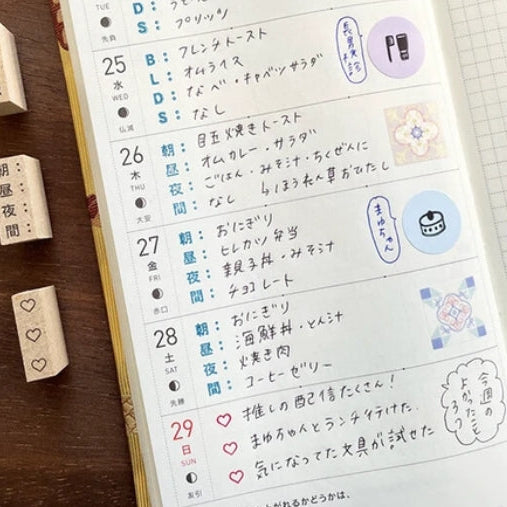 TUE
先負
D:
S: プリッツ
25
水
WED
仏滅
B: フレンチトースト
L: オムライス
D: なべ・キャベツサラダ
S: なし
26
木
THU
大安
朝: 目玉焼きトースト
昼: オムカレー・サラダ
夜: ごはん・みそ汁・ちくぜんに
ほうれん草おひたし
間: なし
27
金
FRI
赤口
朝: おにぎり
昼: ヒレカツ弁当
夜: 親子丼・みそ汁
間: チョコレート
まゆちゃん
28
土
SAT
先勝
朝: おにぎり
昼: 海鮮丼・とん汁
夜: 焼き肉
間: コーヒーゼリー
29
日
SUN
友引
推しの配信たくさん!
まゆちゃんとランチ行けた
気になってた文具が試せた
今週の
よかったこと
3つ
朝:
昼:
夜:
間: